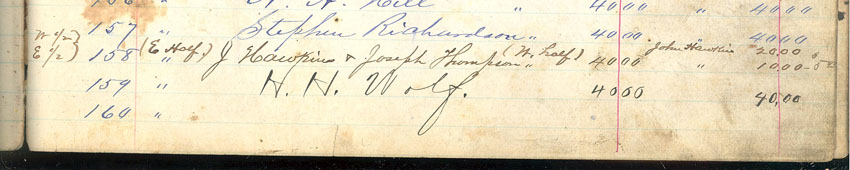 156 " Hill " 4000 " 4000
157 " Stephen Richardson " 4000 " 4000
W 1/2) E 1/2) 158 (E Half) J Hawkins & Joseph Thompson (W. half) " 4000 John Hawkins 2000
" 1000
159 " H. H. Wolf. 4000 40,00
160 "